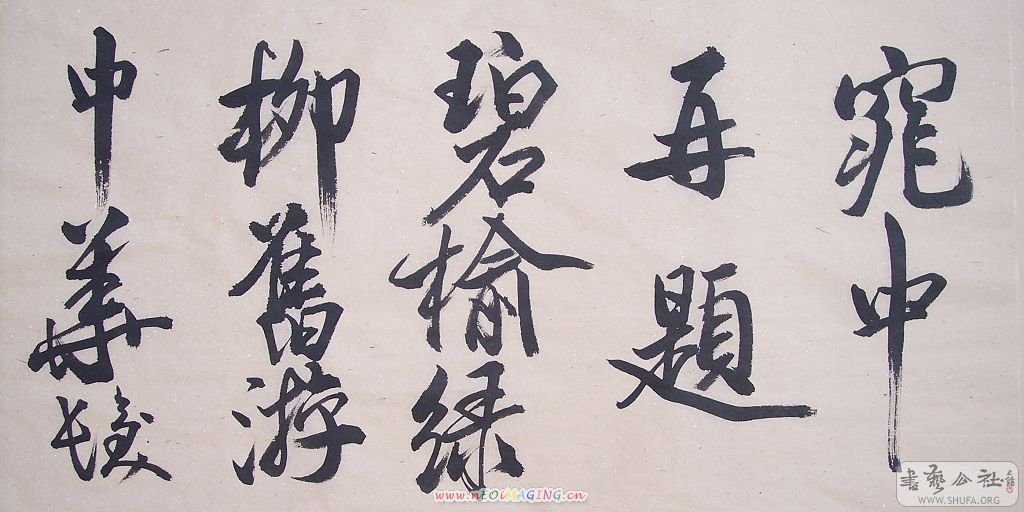 中
再題
碧榆綠
柳舊游
中華
www.nEOiMAGiNG.cn
書藝公社
WWW.SHUFA.ORG